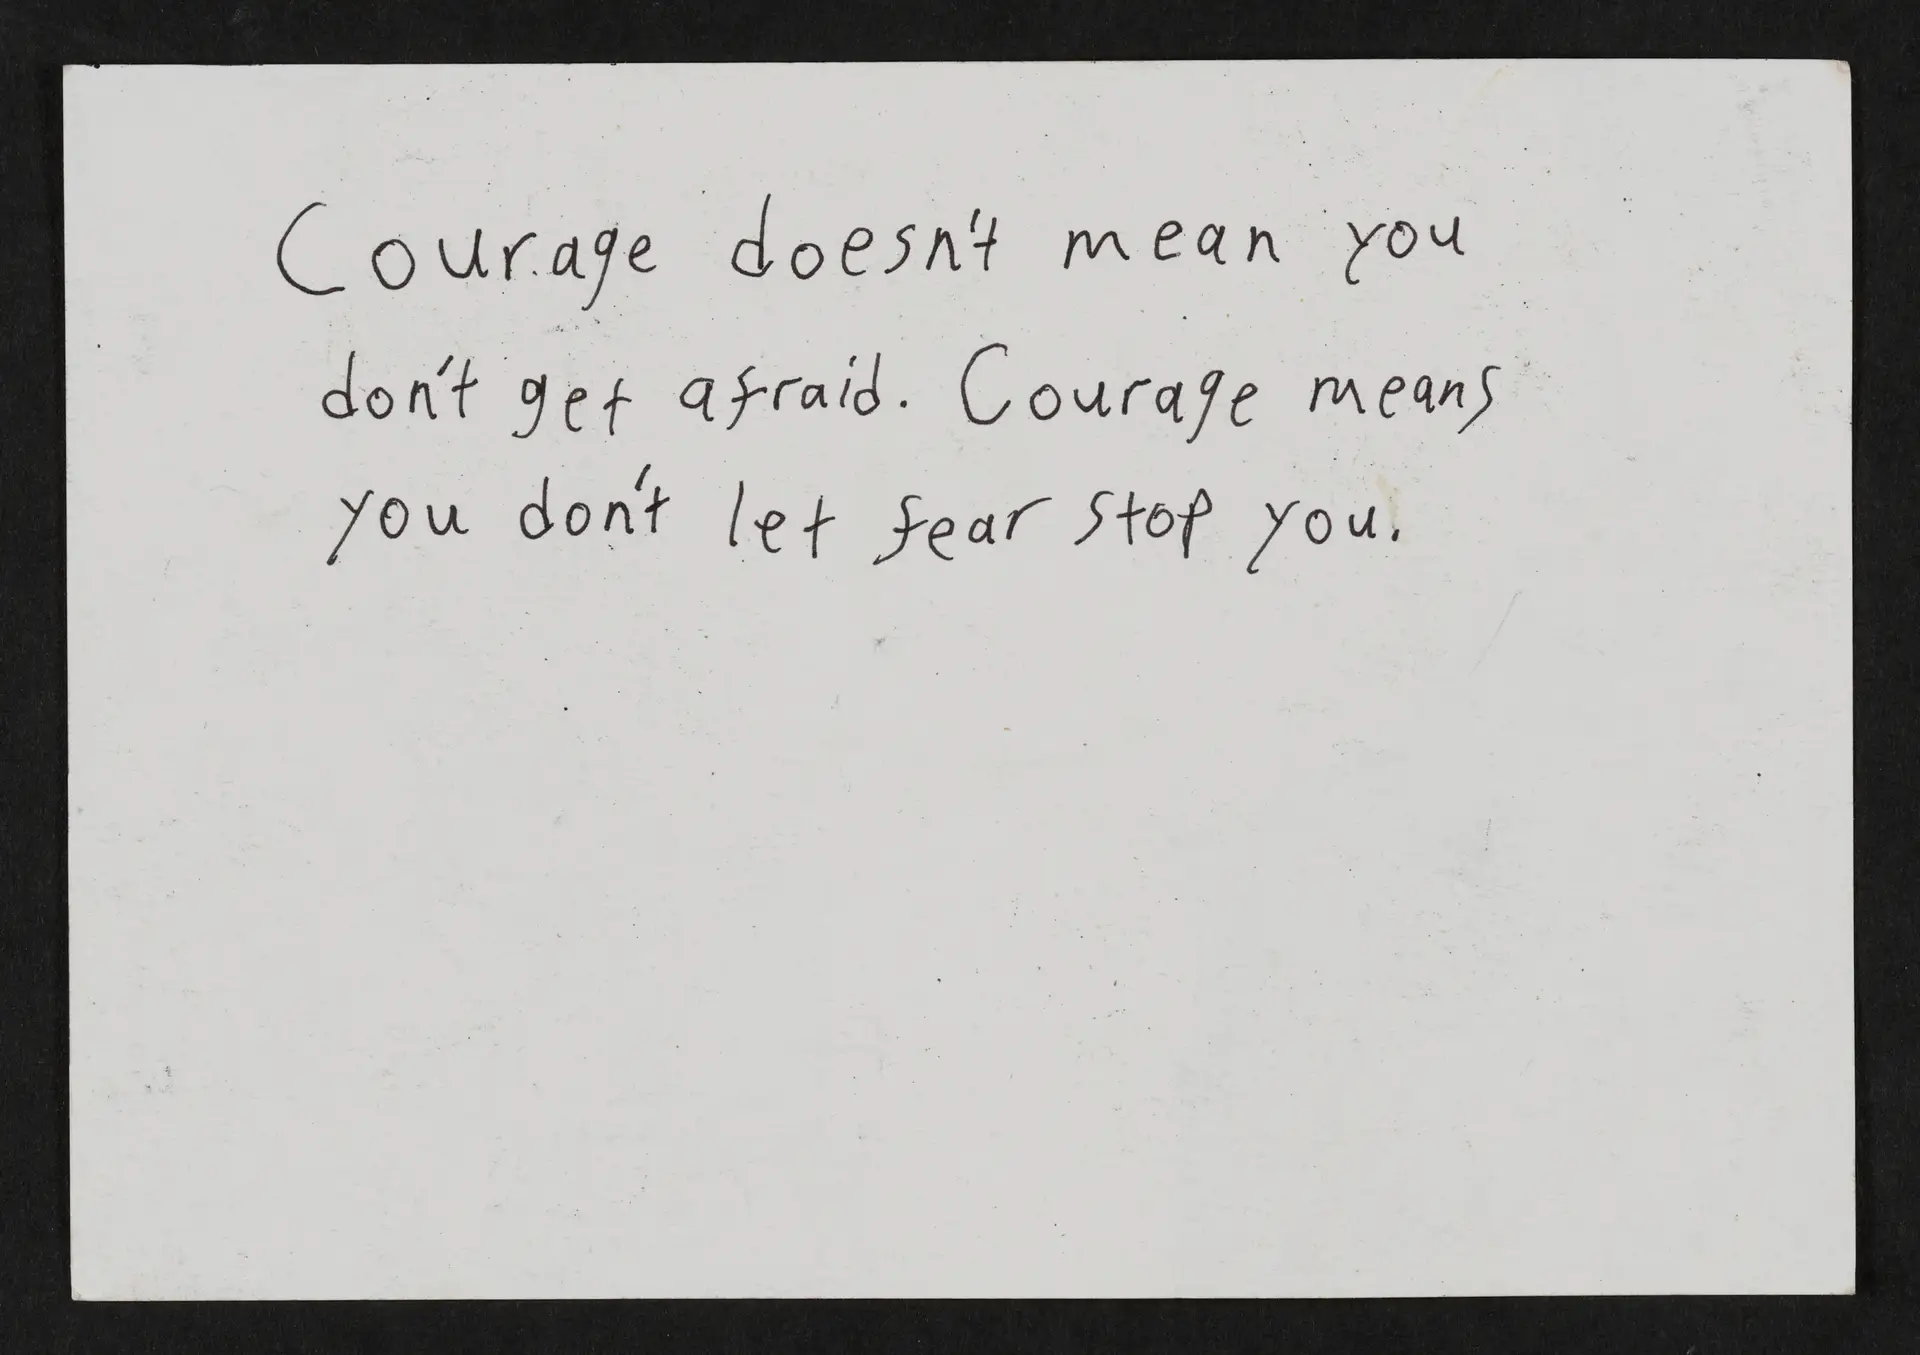 Courage doesn't mean you
don't get afraid. Courage means
you don't let fear stop you.